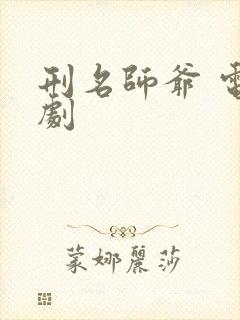 刑名師爺 電
劇
蒙娜麗莎